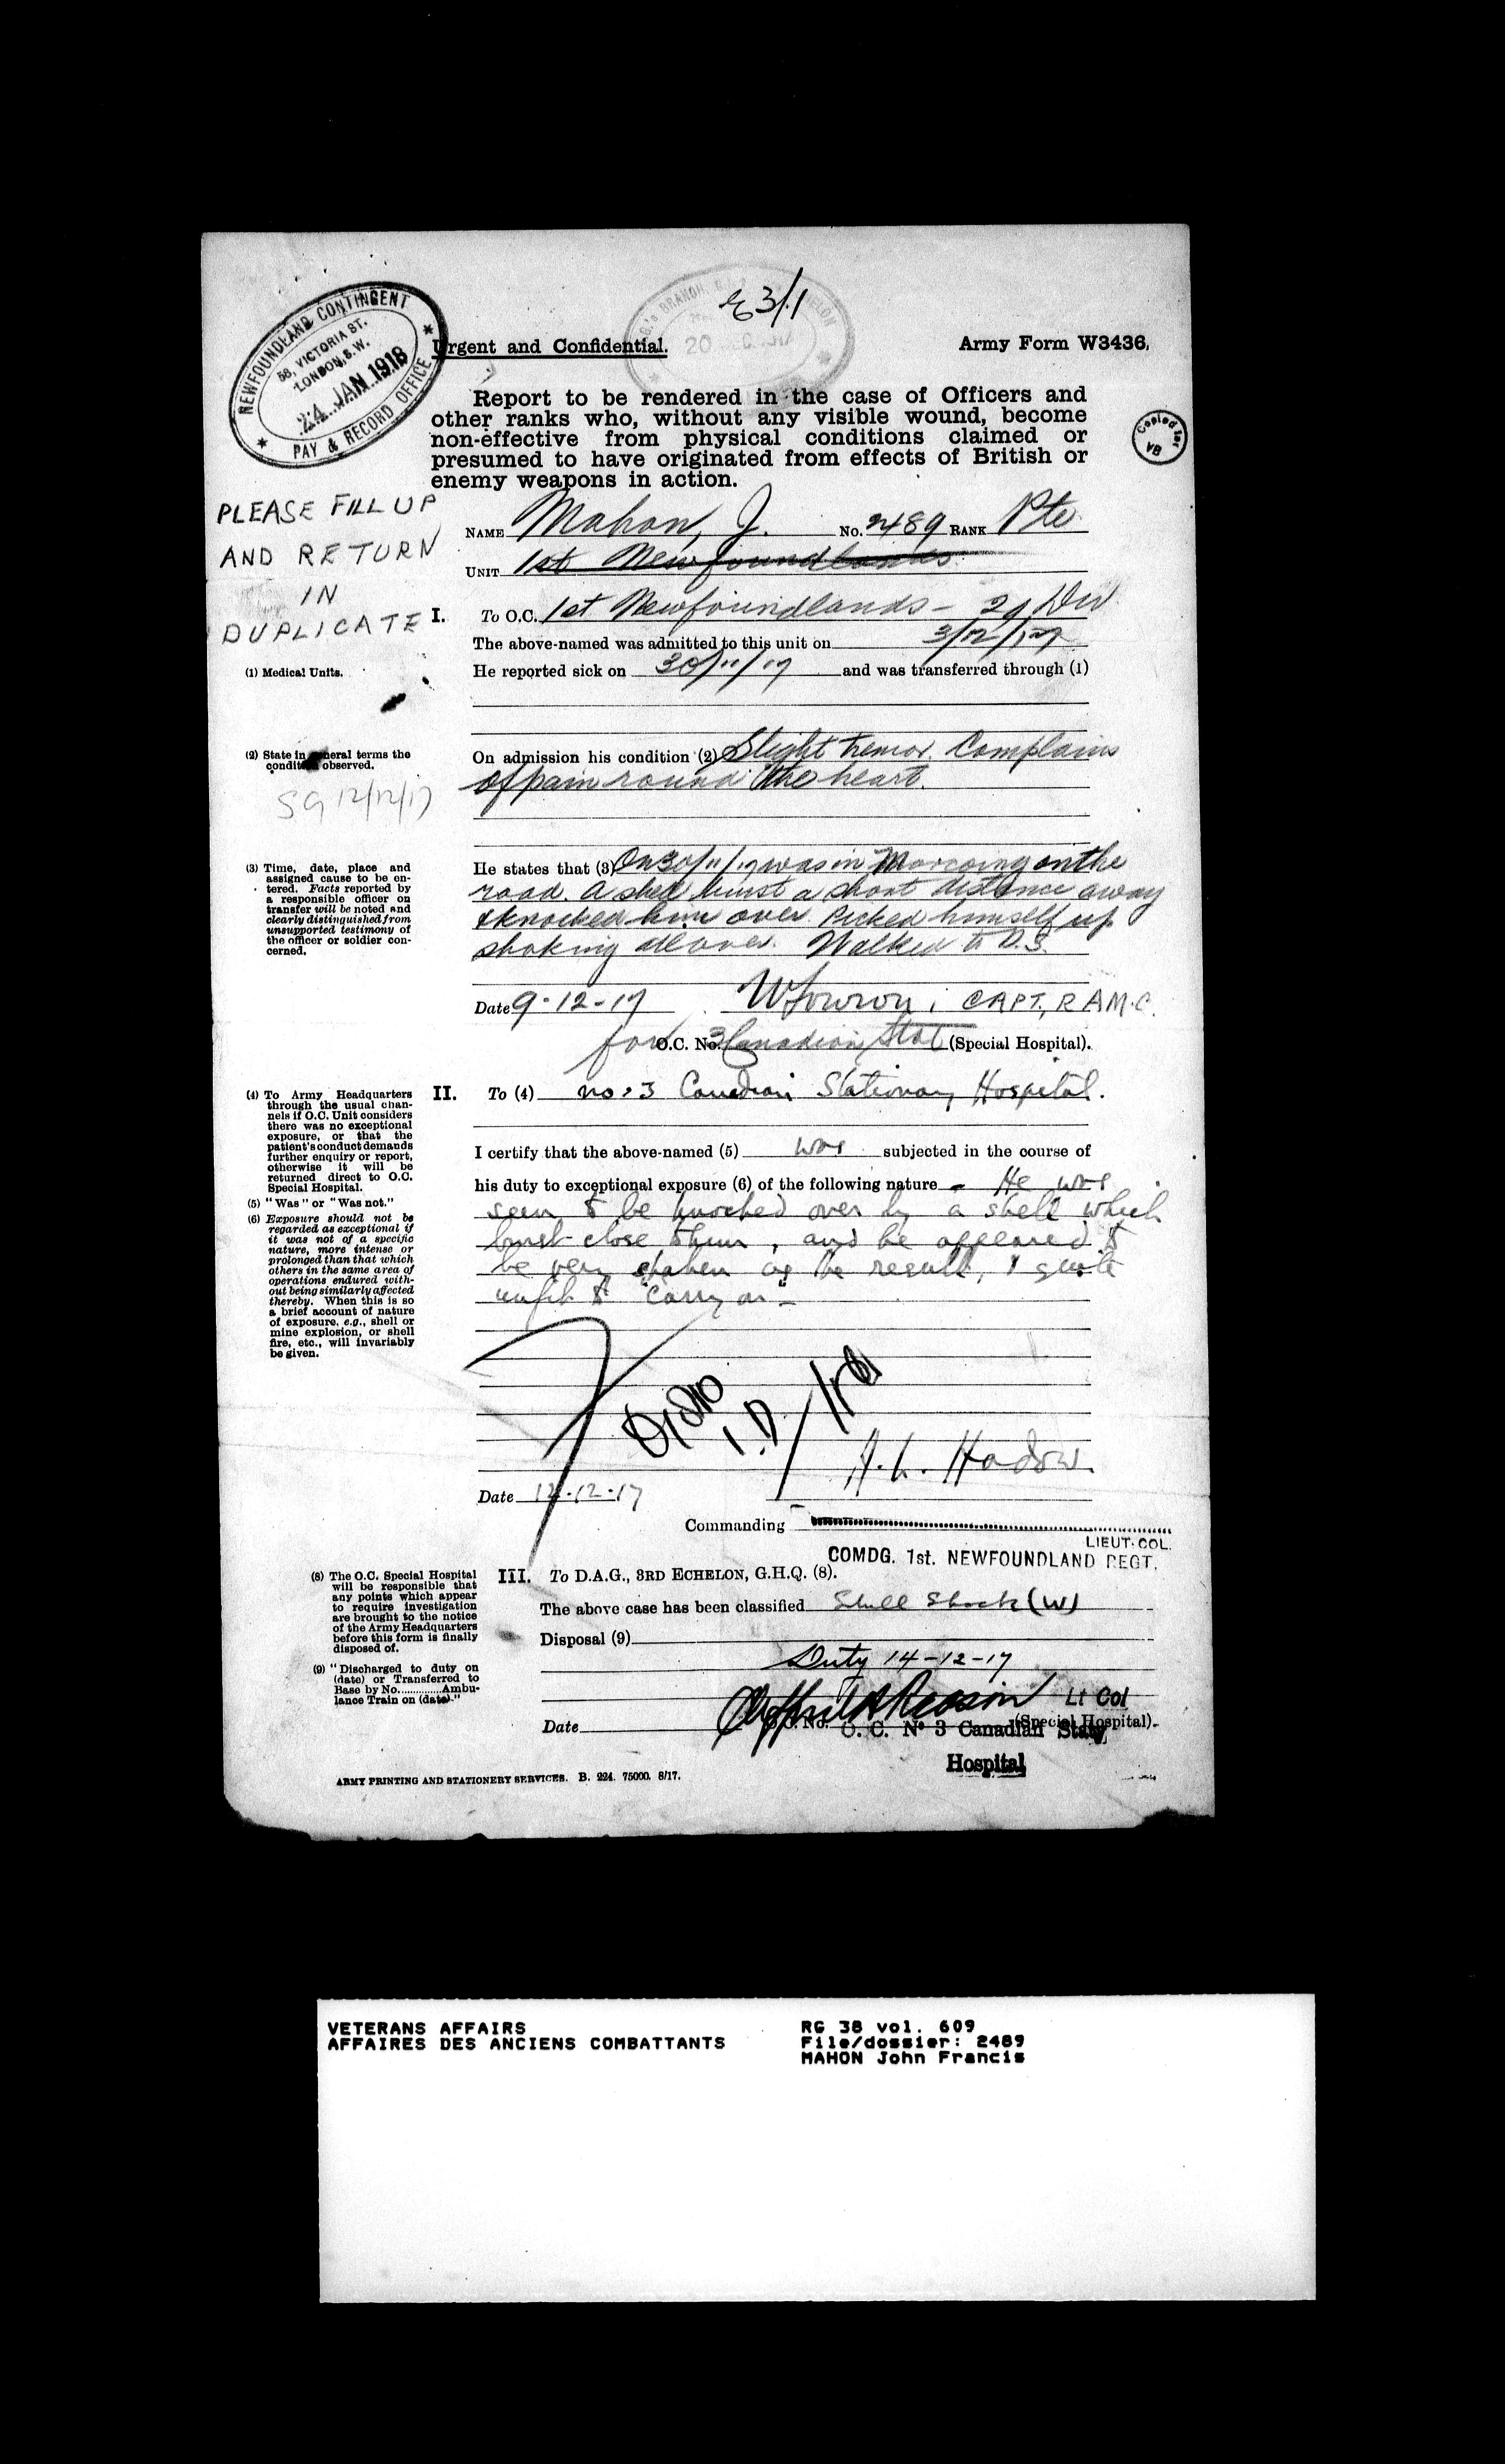 E3/1
NEWFOUNDLAND CONTINGENT
58, VICTORIA ST.
LONDON, S.W.
24 JAN 1918
PAY & RECORD OFFICE
Urgent and Confidential.
Army Form W3436.
Report to be rendered in the case of Officers and
other ranks who, without any visible wound, become
non-effective from physical conditions claimed or
presumed to have originated from effects of British or
enemy weapons in action.
Copied for
PLEASE FILL UP
AND RETURN
IN
DUPLICATE
NAME Mahon, J. No. 2489 RANK Pte
UNIT 1st Newfoundlands
I. To O.C. 1st Newfoundlands - 29 Div
The above-named was admitted to this unit on 3/12/17
(1) Medical Units.
He reported sick on 30/11/17 and was transferred through (1)
(2) State in general terms the
condition observed.
SG 12/12/17
On admission his condition (2) Slight tremor. Complains
of pain round the heart.
(3) Time, date, place and
assigned cause to be en-
tered. Facts reported by
a responsible officer on
transfer will be noted and
clearly distinguished from
unsupported testimony of
the officer or soldier con-
cerned.
He states that (3) On 30/11/17 was in Marcoing on the
road. A shell burst a short distance away
& knocked him over. Picked himself up
shaking all over. Walked to D.S.
Date 9-12-17 CAPT, R.A.M.C.
for O.C. No. 3 Canadian Stat (Special Hospital).
(4) To Army Headquarters
through the usual chan-
nels if O.C. Unit considers
there was no exceptional
exposure, or that the
patient's conduct demands
further enquiry or report,
otherwise it will be
returned direct to O.C.
Special Hospital.
(5) "Was" or "Was not."
(6) Exposure should not be
regarded as exceptional if
it was not of a specific
nature, more intense or
prolonged than that which
others in the same area of
operations endured with-
out being similarly affected
thereby. When this is so
a brief account of nature
of exposure, e.g., shell or
mine explosion, or shell
fire, etc., will invariably
be given.
II. To (4) No. 3 Canadian Stationary Hospital.
I certify that the above-named (5) was subjected in the course of
his duty to exceptional exposure (6) of the following nature - He was
seen to be knocked over by a shell which
burst close to him, and he appeared to
be very shaken as the result, & quite
unfit to "carry on" -
A. L. Hadow.
Date 12-12-17
Commanding
LIEUT-COL.
COMDG. 1st. NEWFOUNDLAND REGT.
(8) The O.C. Special Hospital
will be responsible that
any points which appear
to require investigation
are brought to the notice
of the Army Headquarters
before this form is finally
disposed of.
(9) "Discharged to duty on
(date) or Transferred to
Base by No.............Ambu-
lance Train on (date)."
III. To D.A.G., 3RD ECHELON, G.H.Q. (8).
The above case has been classified Shell Shock (W)
Disposal (9)
Duty 14-12-17
Lt Col
Date O.C. No. (Special Hospital).
O. C. No 3 Canadian Staty
Hospital
ARMY PRINTING AND STATIONERY SERVICES. B. 224. 75000. 8/17.
VETERANS AFFAIRS
AFFAIRES DES ANCIENS COMBATTANTS
RG 38 vol. 609
File/dossier: 2489
MAHON John Francis